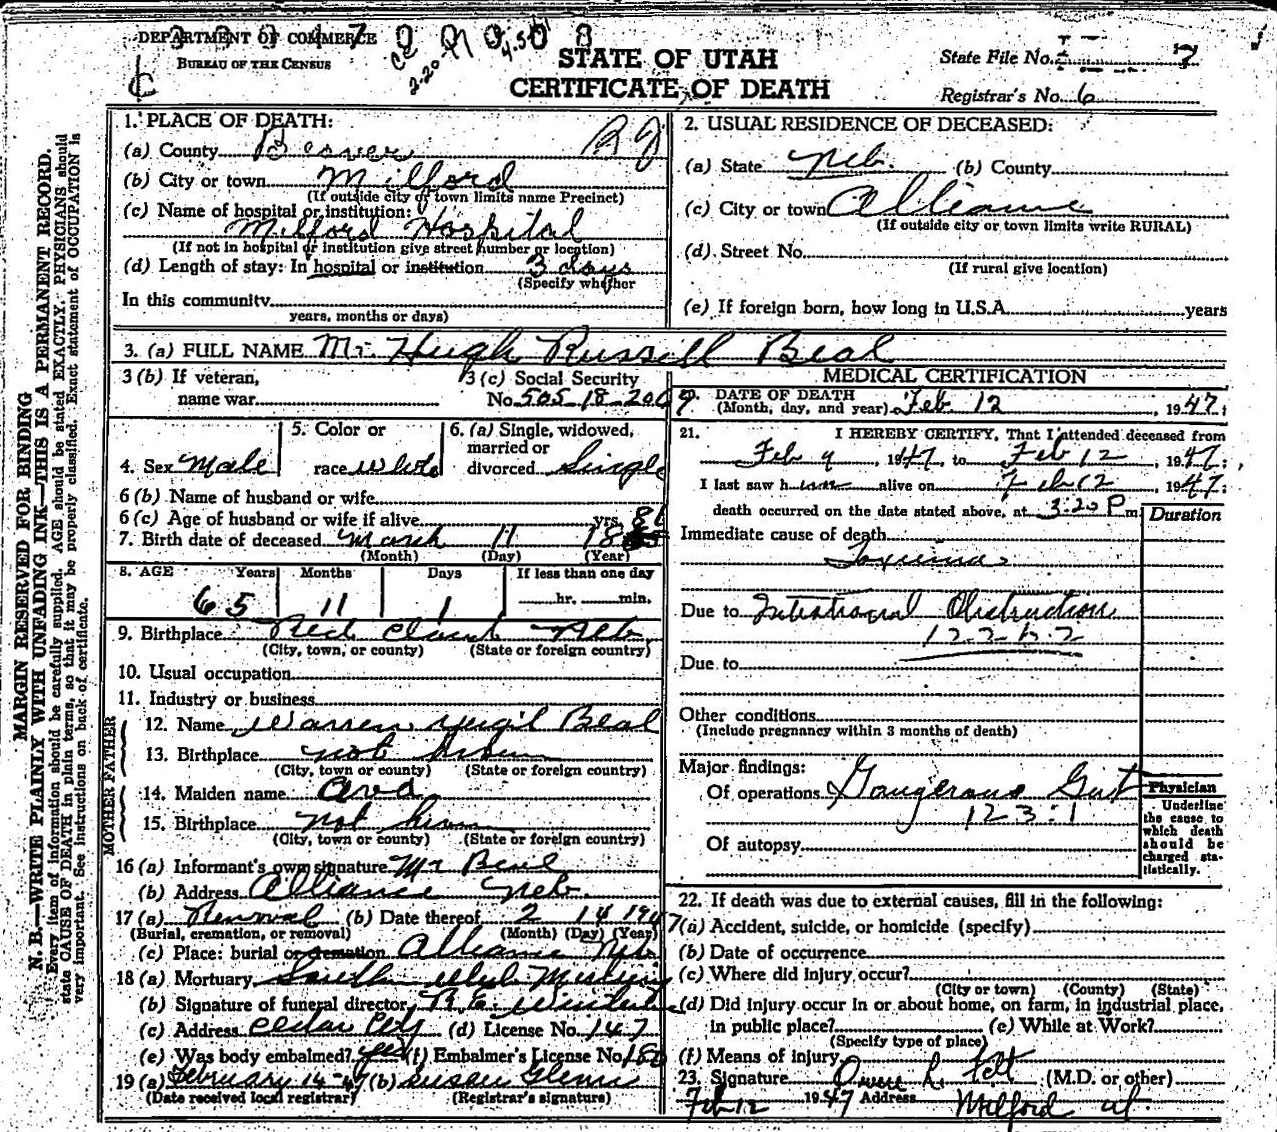 DEPARTMENT OF COMMERCE
BUREAU OF THE CENSUS
STATE OF UTAH
CERTIFICATE OF DEATH
State File No. 7
Registrar's No. 6
MARGIN RESERVED FOR BINDING
N. B.—WRITE PLAINLY WITH UNFADING INK—THIS IS A PERMANENT RECORD.
Every item of information should be carefully supplied. AGE should be stated EXACTLY. PHYSICIANS should
state CAUSE OF DEATH in plain terms, so that it may be properly classified. Exact statement of OCCUPATION is
very important. See instructions on back of certificate.
1. PLACE OF DEATH:
(a) County Beaver
(b) City or town Milford
(If outside city or town limits name Precinct)
(c) Name of hospital or institution:
Milford Hospital
(If not in hospital or institution give street number or location)
(d) Length of stay: In hospital or institution 3 days
(Specify whether
In this community
years, months or days)
2. USUAL RESIDENCE OF DECEASED:
(a) State Neb. (b) County
(c) City or town Alliance
(If outside city or town limits write RURAL)
(d) Street No.
(If rural give location)
(e) If foreign born, how long in U.S.A. years
3. (a) FULL NAME Mr. Hugh Russell Beal
3 (b) If veteran,
name war
3 (c) Social Security
No. 505-18-200
4. Sex Male
5. Color or
race White
6. (a) Single, widowed,
married or
divorced Single
6 (b) Name of husband or wife
6 (c) Age of husband or wife if alive yrs.
7. Birth date of deceased March 11 18 81
(Month) (Day) (Year)
8. AGE Years Months Days If less than one day
65 11 1 hr. min.
9. Birthplace Red Cloud Neb.
(City, town, or county) (State or foreign country)
10. Usual occupation
11. Industry or business
FATHER
12. Name Warren Beal
13. Birthplace not known
(City, town or county) (State or foreign country)
MOTHER
14. Maiden name Ava
15. Birthplace not known
(City, town or county) (State or foreign country)
16 (a) Informant's own signature Mr Beal
(b) Address Alliance Neb.
17 (a) Removal (b) Date thereof 2 14 1947
(Burial, cremation, or removal) (Month) (Day) (Year)
(c) Place: burial or cremation Alliance Neb.
18 (a) Mortuary
(b) Signature of funeral director R. E.
(c) Address Cedar City (d) License No. 147
(e) Was body embalmed? yes (f) Embalmer's License No. 180
19 (a) February 14-47 (b) Susan
(Date received local registrar) (Registrar's signature)
MEDICAL CERTIFICATION
20. DATE OF DEATH
(Month, day, and year) Feb 12, 1947
21. I HEREBY CERTIFY, That I attended deceased from
Feb 9, 1947, to Feb 12, 1947.
I last saw him alive on Feb 12, 1947.
death occurred on the date stated above, at 3:20 P m.
Duration
Immediate cause of death
Toxemia
Due to Intestional Obstruction
122 b.2
Due to
Other conditions
(Include pregnancy within 3 months of death)
Major findings:
Of operations Gangerous Gut
123:1
Of autopsy
Physician
Underline
the cause to
which death
should be
charged sta-
tistically.
22. If death was due to external causes, fill in the following:
(a) Accident, suicide, or homicide (specify)
(b) Date of occurrence
(c) Where did injury occur?
(City or town) (County) (State)
(d) Did injury occur in or about home, on farm, in industrial place,
in public place? (e) While at Work?
(Specify type of place)
(f) Means of injury
23. Signature (M.D. or other)
Feb 12 1947 Address Milford Ut.